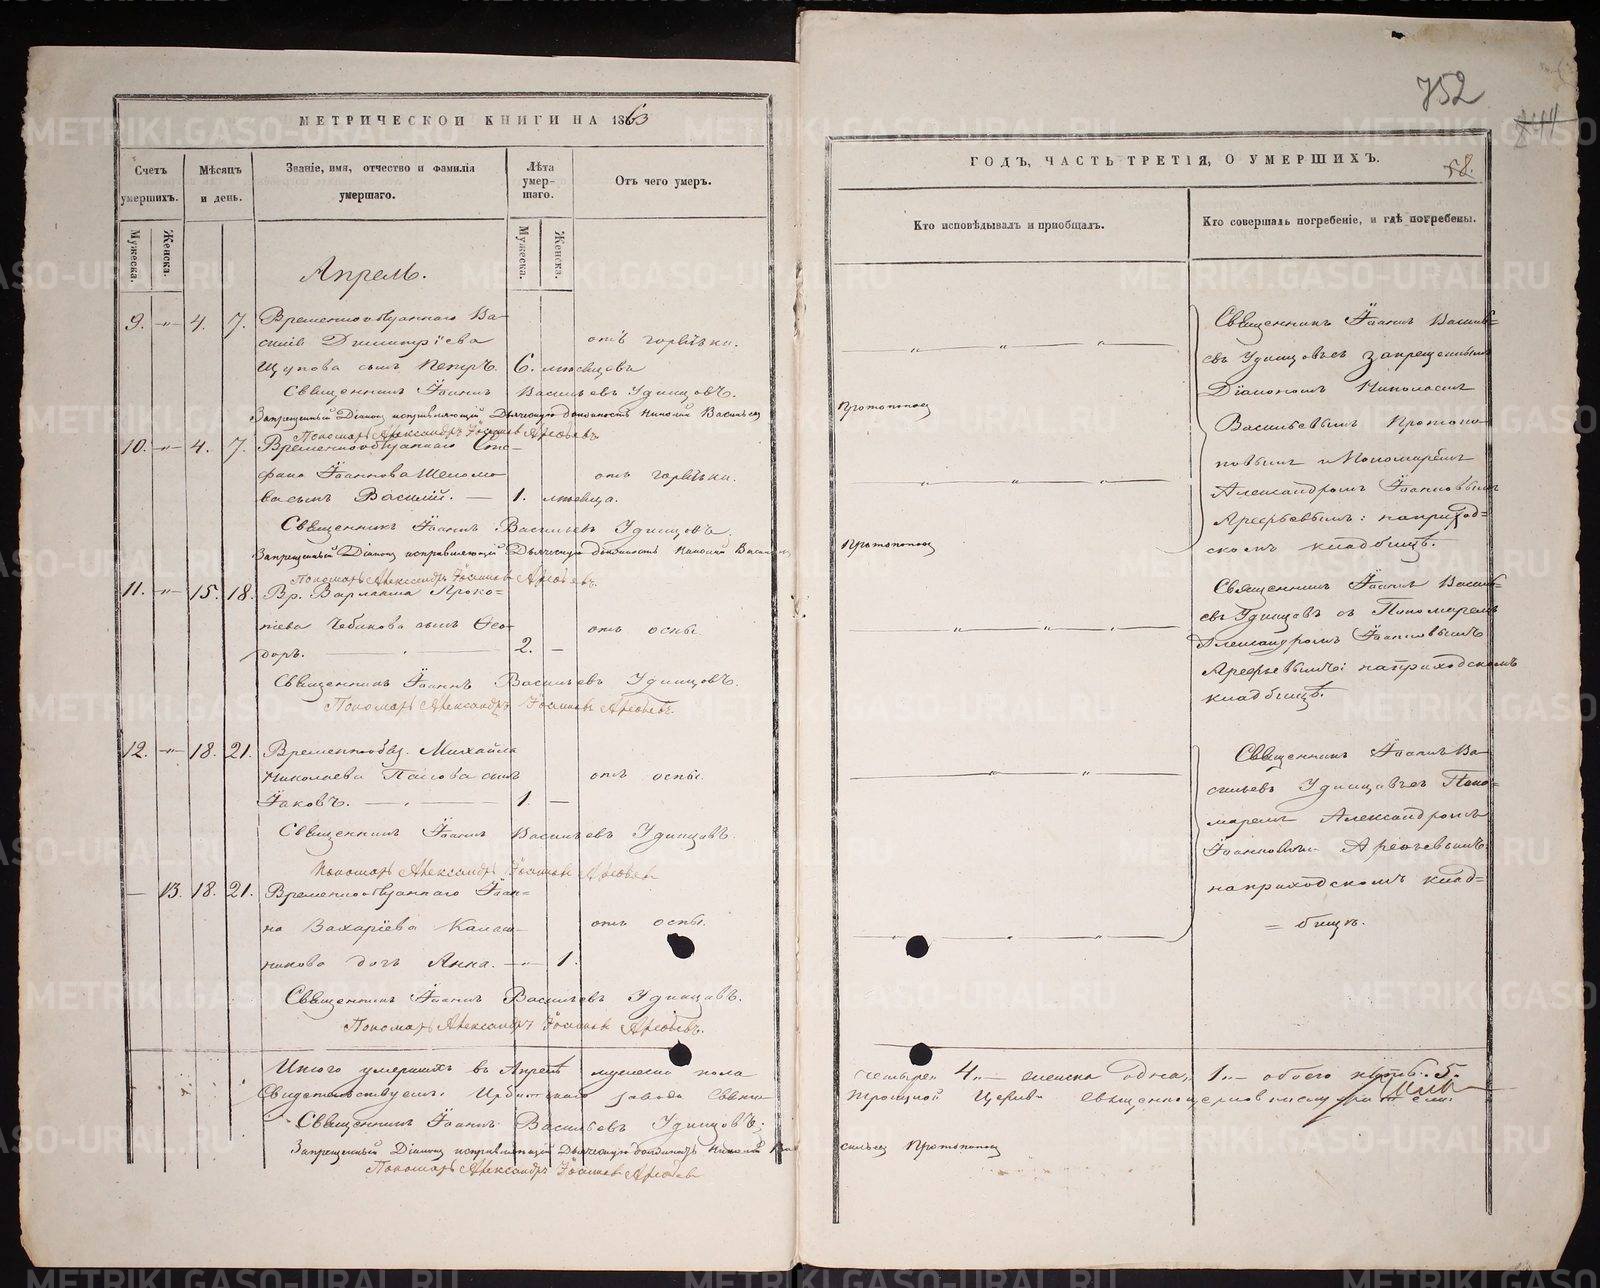 МЕТРИЧЕСКОЙ КНИГИ НА 1863
Счетъ умершихъ.
Мѣсяцъ и день.
Званіе, имя, отчество и фамилія умершаго.
Лѣта умершаго.
Отъ чего умеръ.
Мужеска.
Женска.
Мужеска.
Женска.
Апрель.
9. -"- 4. 7. Временнообязаннаго Ва-
силія Димитріева отъ горячки.
Щупова сынъ Петръ. 6. мѣсяцовъ
Священникъ Іоаннъ Васильевъ Удинцовъ.
Запрещенный Діаконъ исправляющій Дьяческую должность Николай Васильевъ
Пономарь Александръ Іоанновъ Арефьевъ
10. -"- 4. 7. Временнообязаннаго Сте-
фана Іоаннова Шеломо- отъ горячки.
ва сынъ Василій. — 1. мѣсяца.
Священникъ Іоаннъ Васильевъ Удинцовъ,
Запрещенный Діаконъ исправляющій Дьяческую должность Николай Васильевъ
Пономарь Александръ Іоанновъ Арефьевъ.
11. -"- 15. 18. Вр. Варлаама Проко-
піева Чебакова сынъ Ѳео- отъ оспы.
доръ. — 2. —
Священникъ Іоаннъ Васильевъ Удинцовъ.
Пономарь Александръ Іоанновъ Арефьевъ.
12. -"- 18. 21. Временнообяз. Михайла
Николаева сынъ отъ оспы.
Іаковъ. — 1. —
Священникъ Іоаннъ Васильевъ Удинцовъ.
Пономарь Александръ Іоанновъ Арефьевъ
— 13. 18. 21. Временнообязаннаго Іоан-
на Захаріева Калаш- отъ оспы.
никова дочь Анна. -"- 1.
Священникъ Іоаннъ Васильевъ Удинцовъ.
Пономарь Александръ Іоанновъ Арефьевъ.
Итого умершихъ въ Апрелѣ мужеска пола
Свидетельствуемъ. Ирбитскаго завода Свято
Священникъ Іоаннъ Васильевъ Удинцовъ;
Запрещенный Діаконъ исправляющій Дьяческую должность Николай Ва
Пономарь Александръ Іоанновъ Арефьевъ
752
844
58.
ГОДЪ, ЧАСТЬ ТРЕТІЯ, О УМЕРШИХЪ.
Кто исповѣдывалъ и пріобщалъ.
Кто совершалъ погребеніе, и гдѣ погребены.
Протопопов
Протопопов
Священникъ Іоаннъ Василь=
евъ Удинцовъ съ запрещеннымъ
Діакономъ Николаемъ
Васильевымъ Протопо-
повымъ и Пономарёмъ
Александромъ Іоанновымъ
Арефьевымъ: на приход=
скомъ кладбищѣ.
Священникъ Іоаннъ Василь=
евъ Удинцовъ съ Пономаремъ
Александромъ Іоанновымъ
Арефьевымъ: на приходскомъ
кладбищѣ.
Священникъ Іоаннъ Ва-
сильевъ Удинцовъ съ Поно=
маремъ Александромъ
Іоанновымъ Арефьевымъ:
на приходскомъ клад=
= бищѣ.
четыре 4. — женска одна, 1. — обоего 5.
Троицкой Церкви священноцерковнослужители
сильевъ Протопопов
METRIKI.GASO-URAL.RU